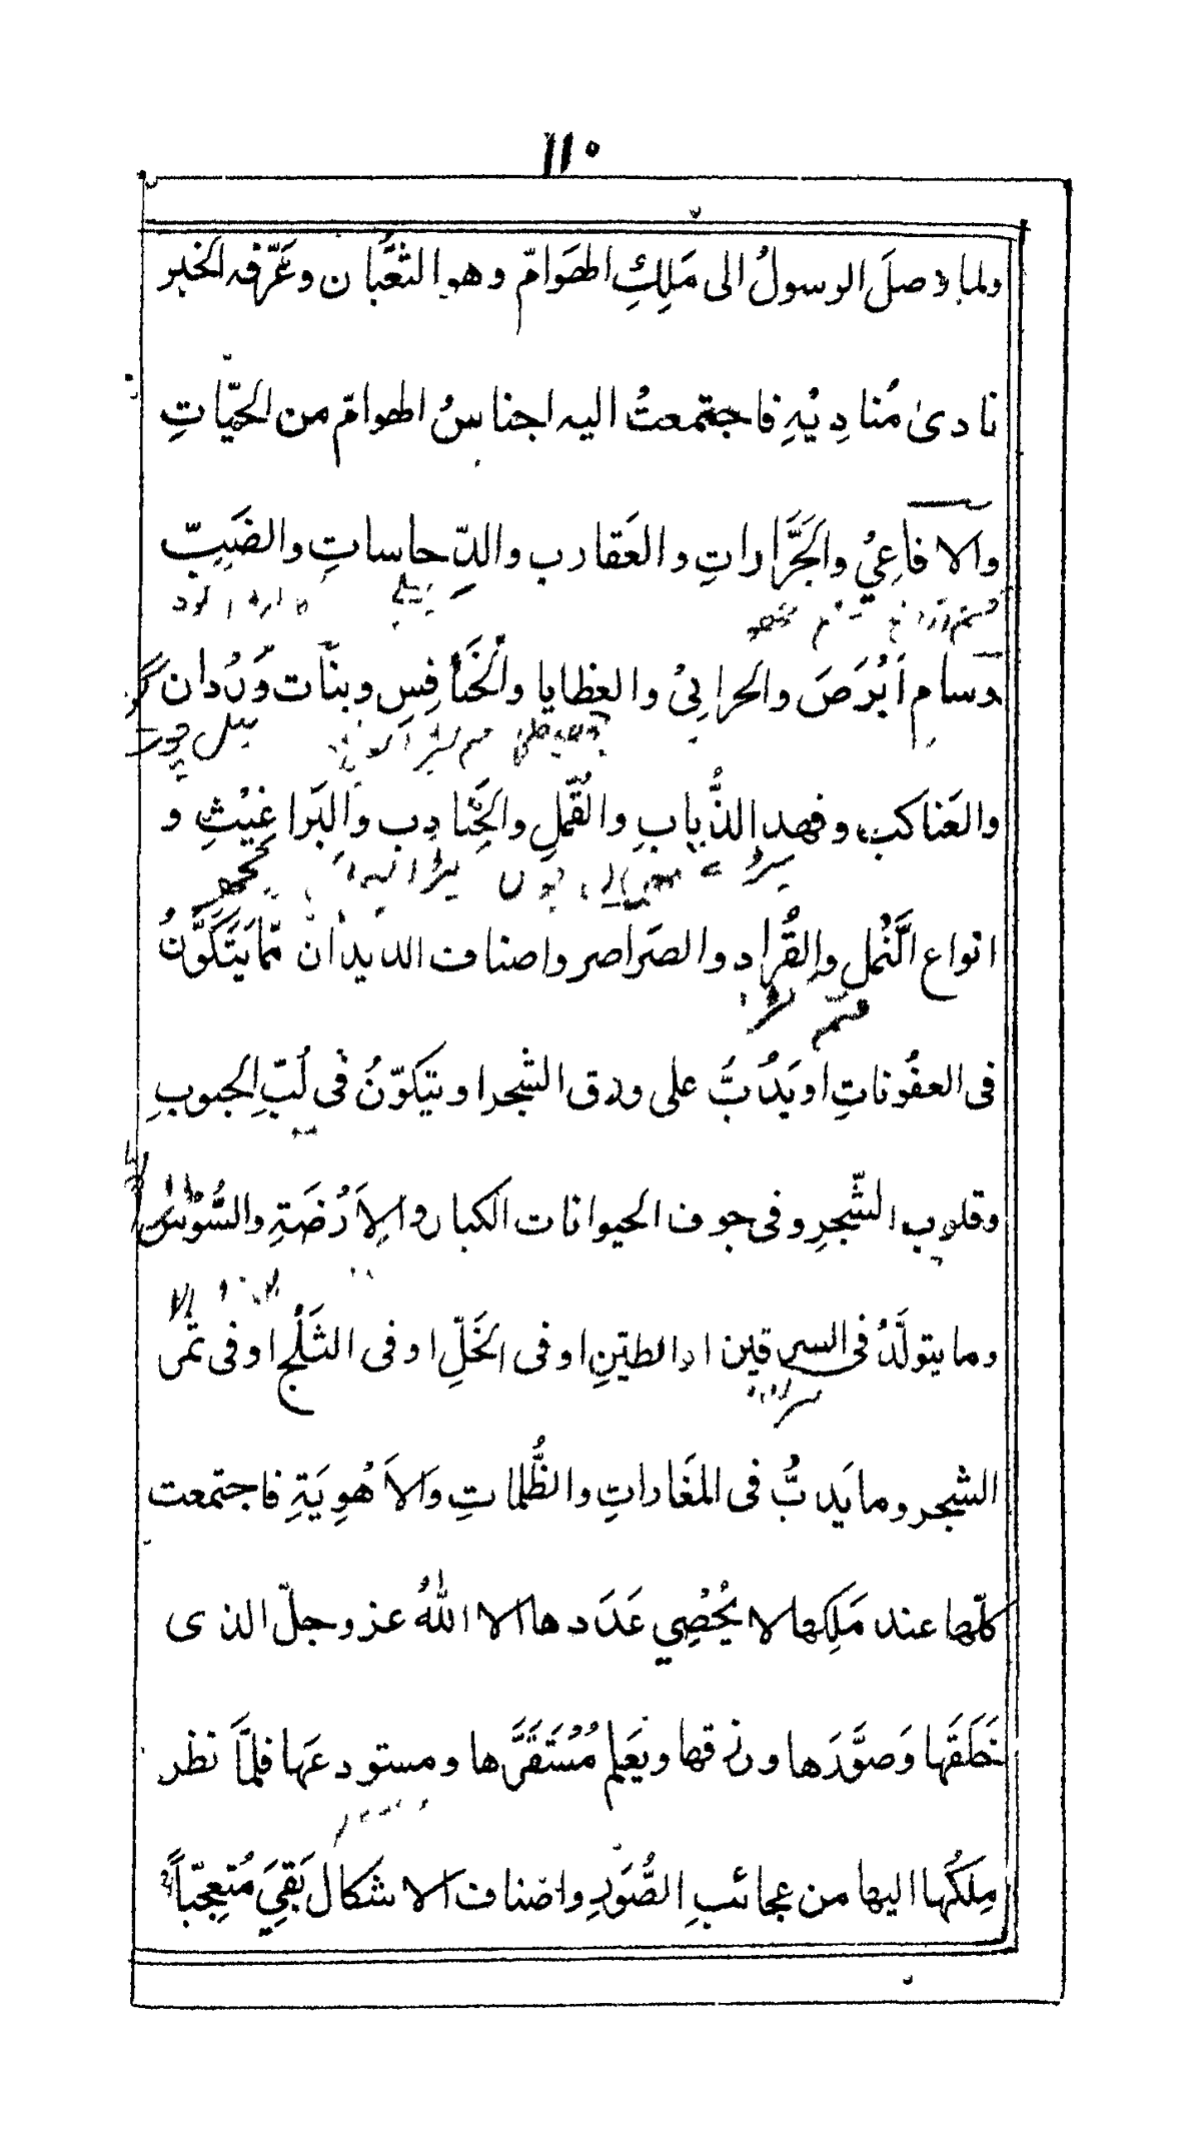 ١١٥
ولما وصلَ الرسولُ الى مَلِكِ الهَوَامّ وهو الثعُبَان وعَرّفه الخبر
نادىٰ مُنادِيْهِ فاجتمعتُ اليه اجناسُ الهوامّ من الحيّاتِ
والافاعِيْ والجَرَّاراتِ والعَقارب والدِّحاساتِ والضَبِبّ
وسام اَبْرَصَ والحرابِیْ والعظايا والخَنَافِسِ وبنَات وَرْدان
والعَناكب وفهد الذُّبابِ والقُمّلِ والجَنادِب والبَراغِيْثِ و
انواع النَّمْلِ والقُرادِ والصَراصر واصناف الديدان ممّا يَتَكَوَّنُ
فى العفُوناتِ او يَدُبُّ على ورق الشجر او يتكوّنُ فى لُبِّ الحبوبِ
وقلوب الشّجرِ وفى جوف الحيوانات الكبار والاَرْضَةِ والسُّوْسُ
وما يتولَّدُ فى السرقين او الطيّنِ او فى الخَلِّ او فى الثَلْج او فى ثمر
الشجر وما يَدبُّ فى المغَاراتِ والظُّلماتِ والاَهْوِيَةِ فاجتمعت
كلّها عند مَلِكها لا يُحْصِي عَدَدها الا اللهُ عز وجلّ الذى
خَلَقَها وَصوَّرَها ورزقها ويَعَلم مُسْتَقَرَّها ومستودعَها فلمَّا نظر
مَلِكُها اليها من عجائبِ الصُّوَرِ واصناف الاشكال بَقِيَ مُتعِجّباً